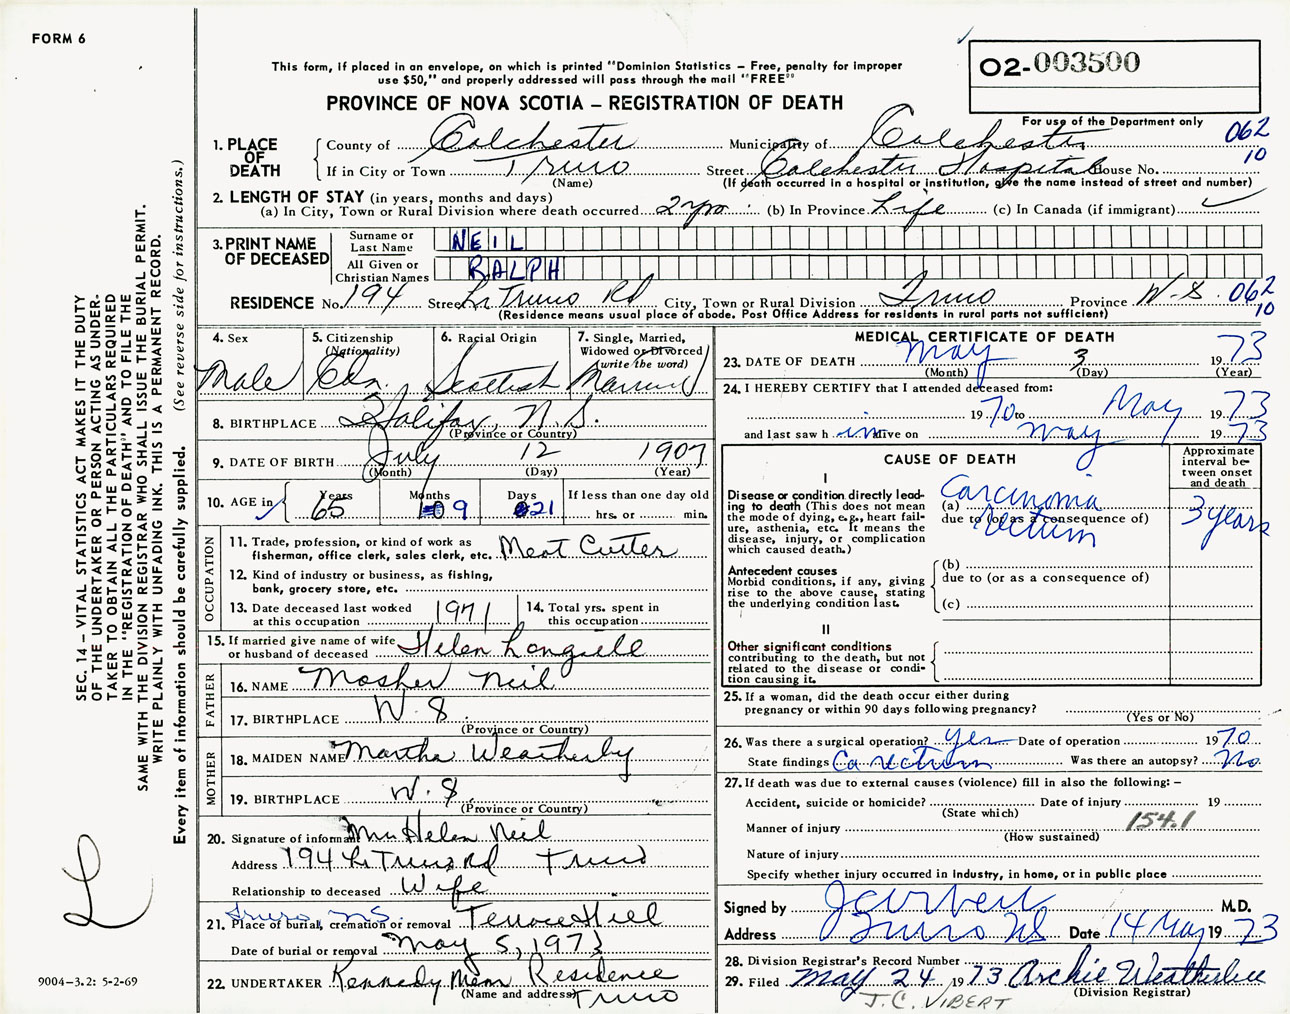 FORM 6
This form, if placed in an envelope, on which is printed "Dominion Statistics – Free, penalty for improper
use $50," and properly addressed will pass through the mail "FREE"
O2-003500
PROVINCE OF NOVA SCOTIA – REGISTRATION OF DEATH
For use of the Department only
062
10
1. PLACE OF DEATH
County of Colchester Municipality of Colchester
If in City or Town Truro Street Colchester Hospital House No.
(Name) (If death occurred in a hospital or institution, give the name instead of street and number)
2. LENGTH OF STAY (in years, months and days)
(a) In City, Town or Rural Division where death occurred 2 yrs (b) In Province Life (c) In Canada (if immigrant)
3. PRINT NAME OF DECEASED
Surname or Last Name NEIL
All Given or Christian Names RALPH
RESIDENCE No. 194 Street Truro Rd City, Town or Rural Division Truro Province N.S. 062
10
(Residence means usual place of abode. Post Office Address for residents in rural parts not sufficient)
4. Sex
Male
5. Citizenship (Nationality)
Cdn.
6. Racial Origin
Scottish
7. Single, Married, Widowed or Divorced (write the word)
Married
8. BIRTHPLACE Halifax, N.S.
(Province or Country)
9. DATE OF BIRTH July 12 1907
(Month) (Day) (Year)
10. AGE in Years Months Days If less than one day old
65 9 21 hrs. or min.
OCCUPATION
11. Trade, profession, or kind of work as
fisherman, office clerk, sales clerk, etc. Meat Cutter
12. Kind of industry or business, as fishing,
bank, grocery store, etc.
13. Date deceased last worked at this occupation 1971
14. Total yrs. spent in this occupation
15. If married give name of wife
or husband of deceased Helen
FATHER
16. NAME Mosher Neil
17. BIRTHPLACE N.S.
(Province or Country)
MOTHER
18. MAIDEN NAME Martha Weatherby
19. BIRTHPLACE N.S.
(Province or Country)
20. Signature of informant Mrs Helen Neil
Address 194 Truro Rd Truro
Relationship to deceased Wife
Truro, N.S.
21. Place of burial, cremation or removal Terrace Hill
Date of burial or removal May 5, 1973
22. UNDERTAKER Kennedy Mem Residence
(Name and address) Truro
MEDICAL CERTIFICATE OF DEATH
23. DATE OF DEATH May 3 1973
(Month) (Day) (Year)
24. I HEREBY CERTIFY that I attended deceased from:
in 1970 to May 1973
and last saw h im alive on May 1973
CAUSE OF DEATH
Approximate interval between onset and death
I
Disease or condition directly lead-
ing to death (This does not
mean the mode of dying, e.g., heart fail-
ure, asthenia, etc. It means the
disease, injury, or complication
which caused death.)
(a) Carcinoma
due to (or as a consequence of)
rectum
3 years
Antecedent causes
Morbid conditions, if any, giving
rise to the above cause, stating
the underlying condition last.
(b)
due to (or as a consequence of)
(c)
II
Other significant conditions
contributing to the death, but not
related to the disease or condi-
tion causing it.
25. If a woman, did the death occur either during
pregnancy or within 90 days following pregnancy?
(Yes or No)
26. Was there a surgical operation? Yes Date of operation 1970
State findings Ca rectum Was there an autopsy? No
27. If death was due to external causes (violence) fill in also the following: –
Accident, suicide or homicide? Date of injury 19
(State which)
Manner of injury 154.1
(How sustained)
Nature of injury
Specify whether injury occurred in industry, in home, or in public place
Signed by M.D.
Address Truro NS Date 14 May 1973
28. Division Registrar's Record Number
29. Filed May 24 1973 Archie Weatherbee
(Division Registrar)
J.C. VIBERT
SEC. 14 – VITAL STATISTICS ACT MAKES IT THE DUTY
OF THE UNDERTAKER OR PERSON ACTING AS UNDER-
TAKER TO OBTAIN ALL THE PARTICULARS REQUIRED
IN THE "REGISTRATION OF DEATH" AND TO FILE THE
SAME WITH THE DIVISION REGISTRAR WHO SHALL ISSUE THE BURIAL PERMIT.
WRITE PLAINLY WITH UNFADING INK. THIS IS A PERMANENT RECORD.
Every item of information should be carefully supplied. (See reverse side for instructions.)
L
9004–3.2: 5-2-69